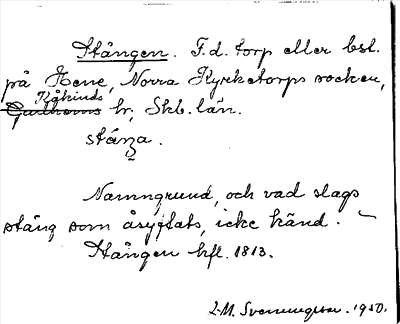 Stången. F.d. torp eller bst.
på Hene, Norra Kyrketorps socken,
Kåkinds
Gudhems hr, Skb. län.
stáŋa.
Namngrund, och vad slags
stång som åsyftats, icke känd.
Stången hfl. 1813.
L-M. Svenningsson. 1950.